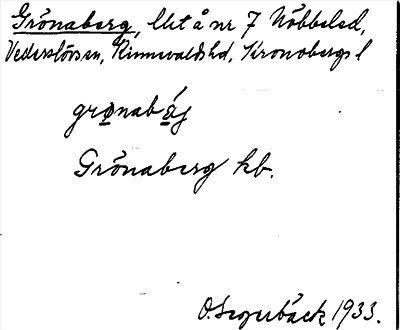 Grönaberg, litt å nr 7 Nöbbeled,
Vederslövs sn, Kinnevalds hd, Kronobergs l
grønabǿj
Grönaberg kb.
O. Segerbäck 1933.